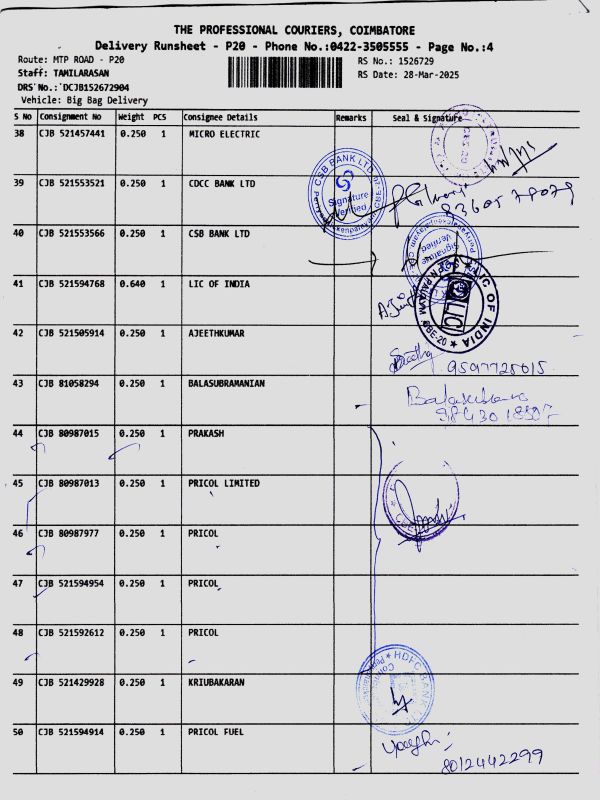 THE PROFESSIONAL COURIERS, COIMBATORE
Delivery Runsheet - P20 - Phone No.:0422-3505555 - Page No.:4
Route: MTP ROAD - P20
RS No.: 1526729
Staff: TAMILARASAN
RS Date: 28-Mar-2025
DRS No.: DCJB152672904
Vehicle: Big Bag Delivery
S No Consignment No Weight PCS Consignee Details Remarks Seal & Signature
38 CJB 521457441 0.250 1 MICRO ELECTRIC
39 CJB 521553521 0.250 1 CDCC BANK LTD
CSB BANK LTD
Signature
Verified
40 CJB 521553566 0.250 1 CSB BANK LTD
Signature
Verified
41 CJB 521594768 0.640 1 LIC OF INDIA
LIC OF INDIA
LIC
CBE-20
42 CJB 521505914 0.250 1 AJEETHKUMAR
9597725015
43 CJB 81058294 0.250 1 BALASUBRAMANIAN
44 CJB 80987015 0.250 1 PRAKASH
45 CJB 80987013 0.250 1 PRICOL LIMITED
46 CJB 80987977 0.250 1 PRICOL
47 CJB 521594954 0.250 1 PRICOL
48 CJB 521592612 0.250 1 PRICOL
49 CJB 521429928 0.250 1 KRIUBAKARAN
HDFC BANK
50 CJB 521594914 0.250 1 PRICOL FUEL
8012442299